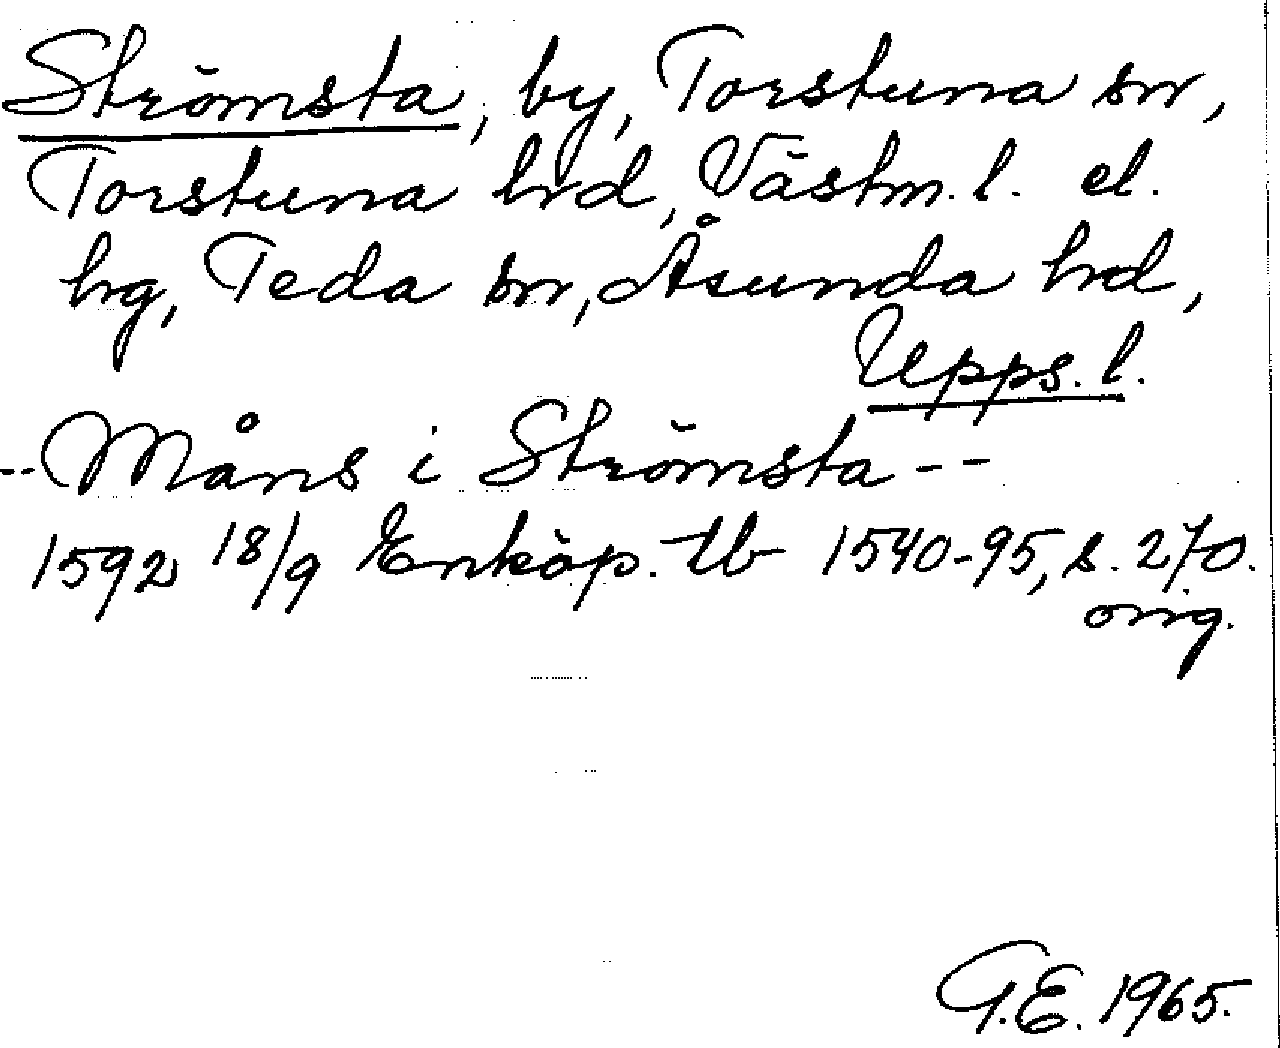 Strömsta, by, Torstuna sn,
Torstuna hd, Västm. l. el.
hg, Teda sn, Åsunda hd,
Upps. l.
-- Måns i Strömsta --
1592 18/9 Enköp. tb 1540-95, s. 270.
orig.
G.E. 1965.